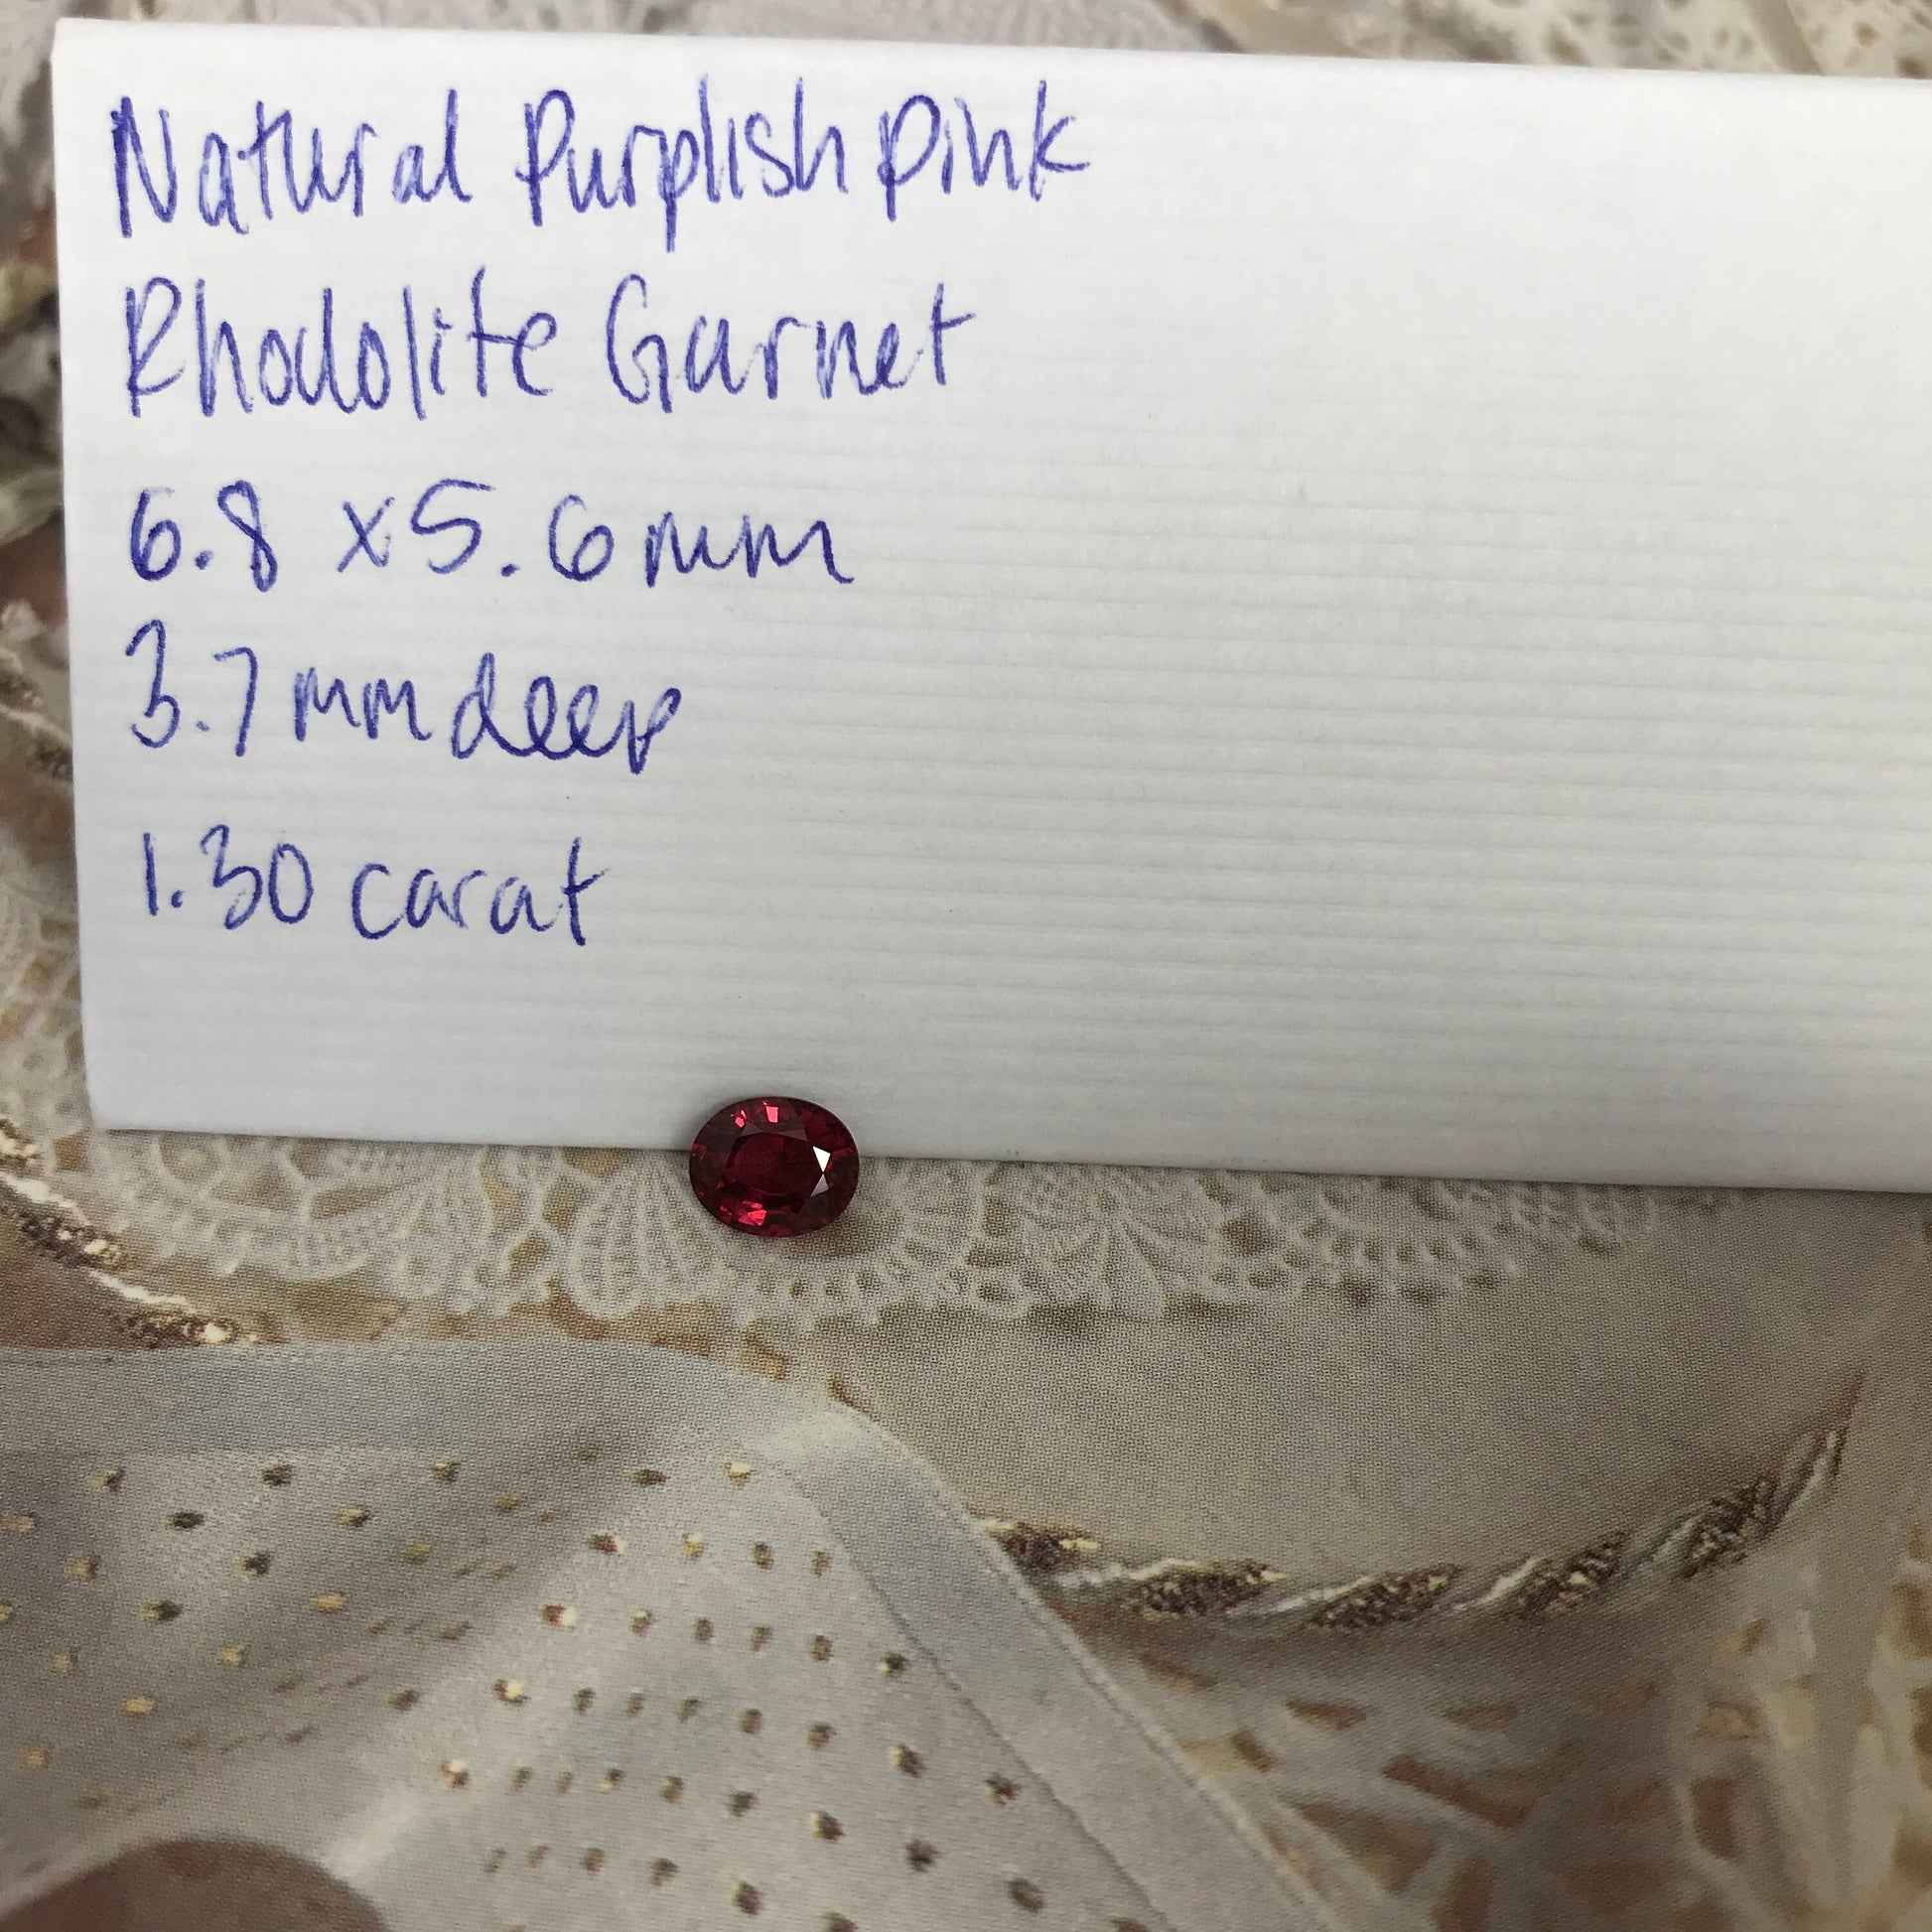 Natural Purplish Pink
Rhodolite Garnet
6.8 x 5.6mm
3.7mm deep
1.30 carat